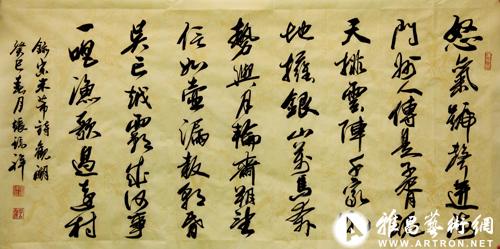 怒氣號聲迸
門州人傳是子胥
天排雲陣千家
地擁銀山萬馬奔
勢與月輪齊朔望
信如壺漏報 昏
吳亡越霸成何事
一唱漁歌過遠村
錄宋米芾詩觀潮
癸巳春月張瑞祥
雅昌藝術網
WWW.ARTRON.NET